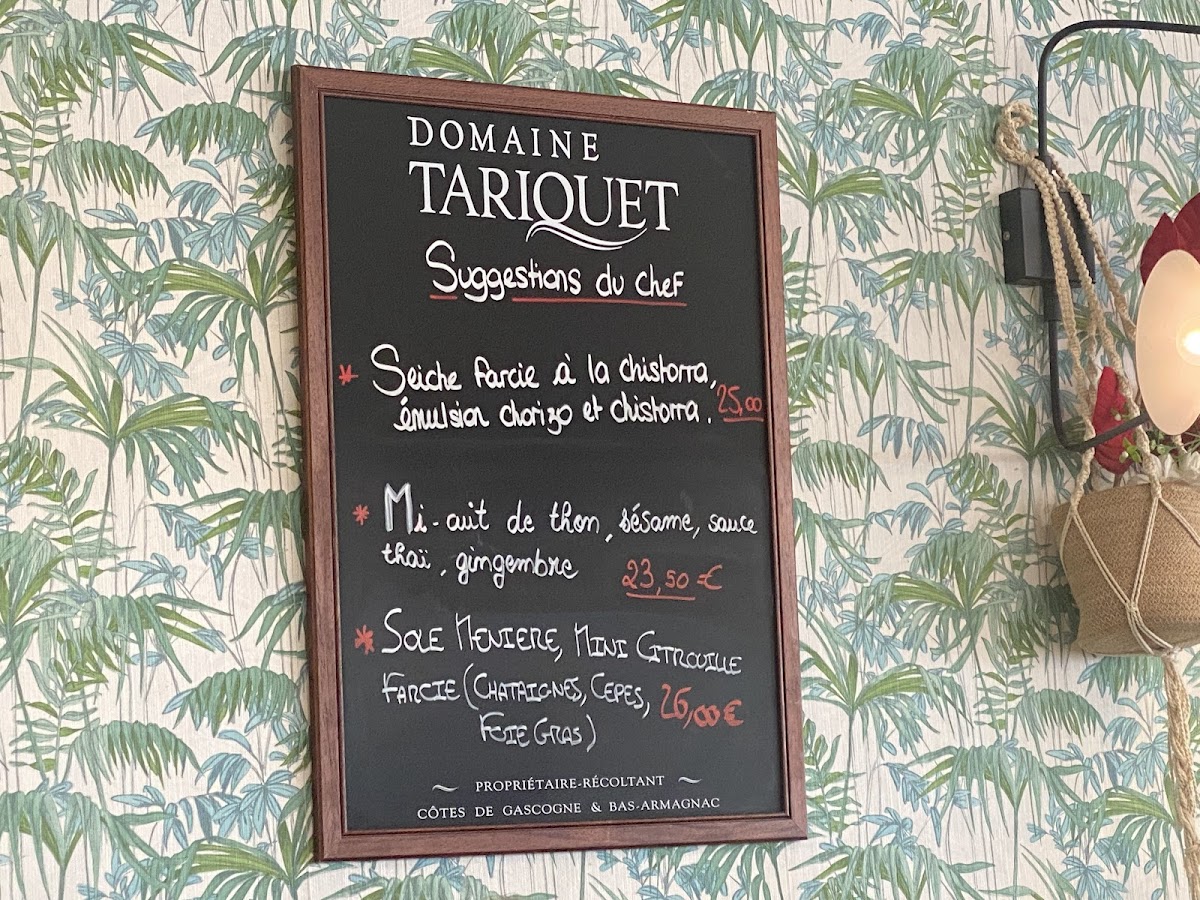 DOMAINE
TARIQUET
Suggestions du chef
* Seiche farcie à la chistorra,
émulsion chorizo et chistorra. 25,00
* Mi-cuit de thon, sésame, sauce
thaï, gingembre 23,50 €
* SOLE MENIERE, MINI CITROUILLE
FARCIE (CHATAIGNES, CEPES, 26,00 €
FOIE GRAS)
~ PROPRIÉTAIRE-RÉCOLTANT ~
CÔTES DE GASCOGNE & BAS-ARMAGNAC